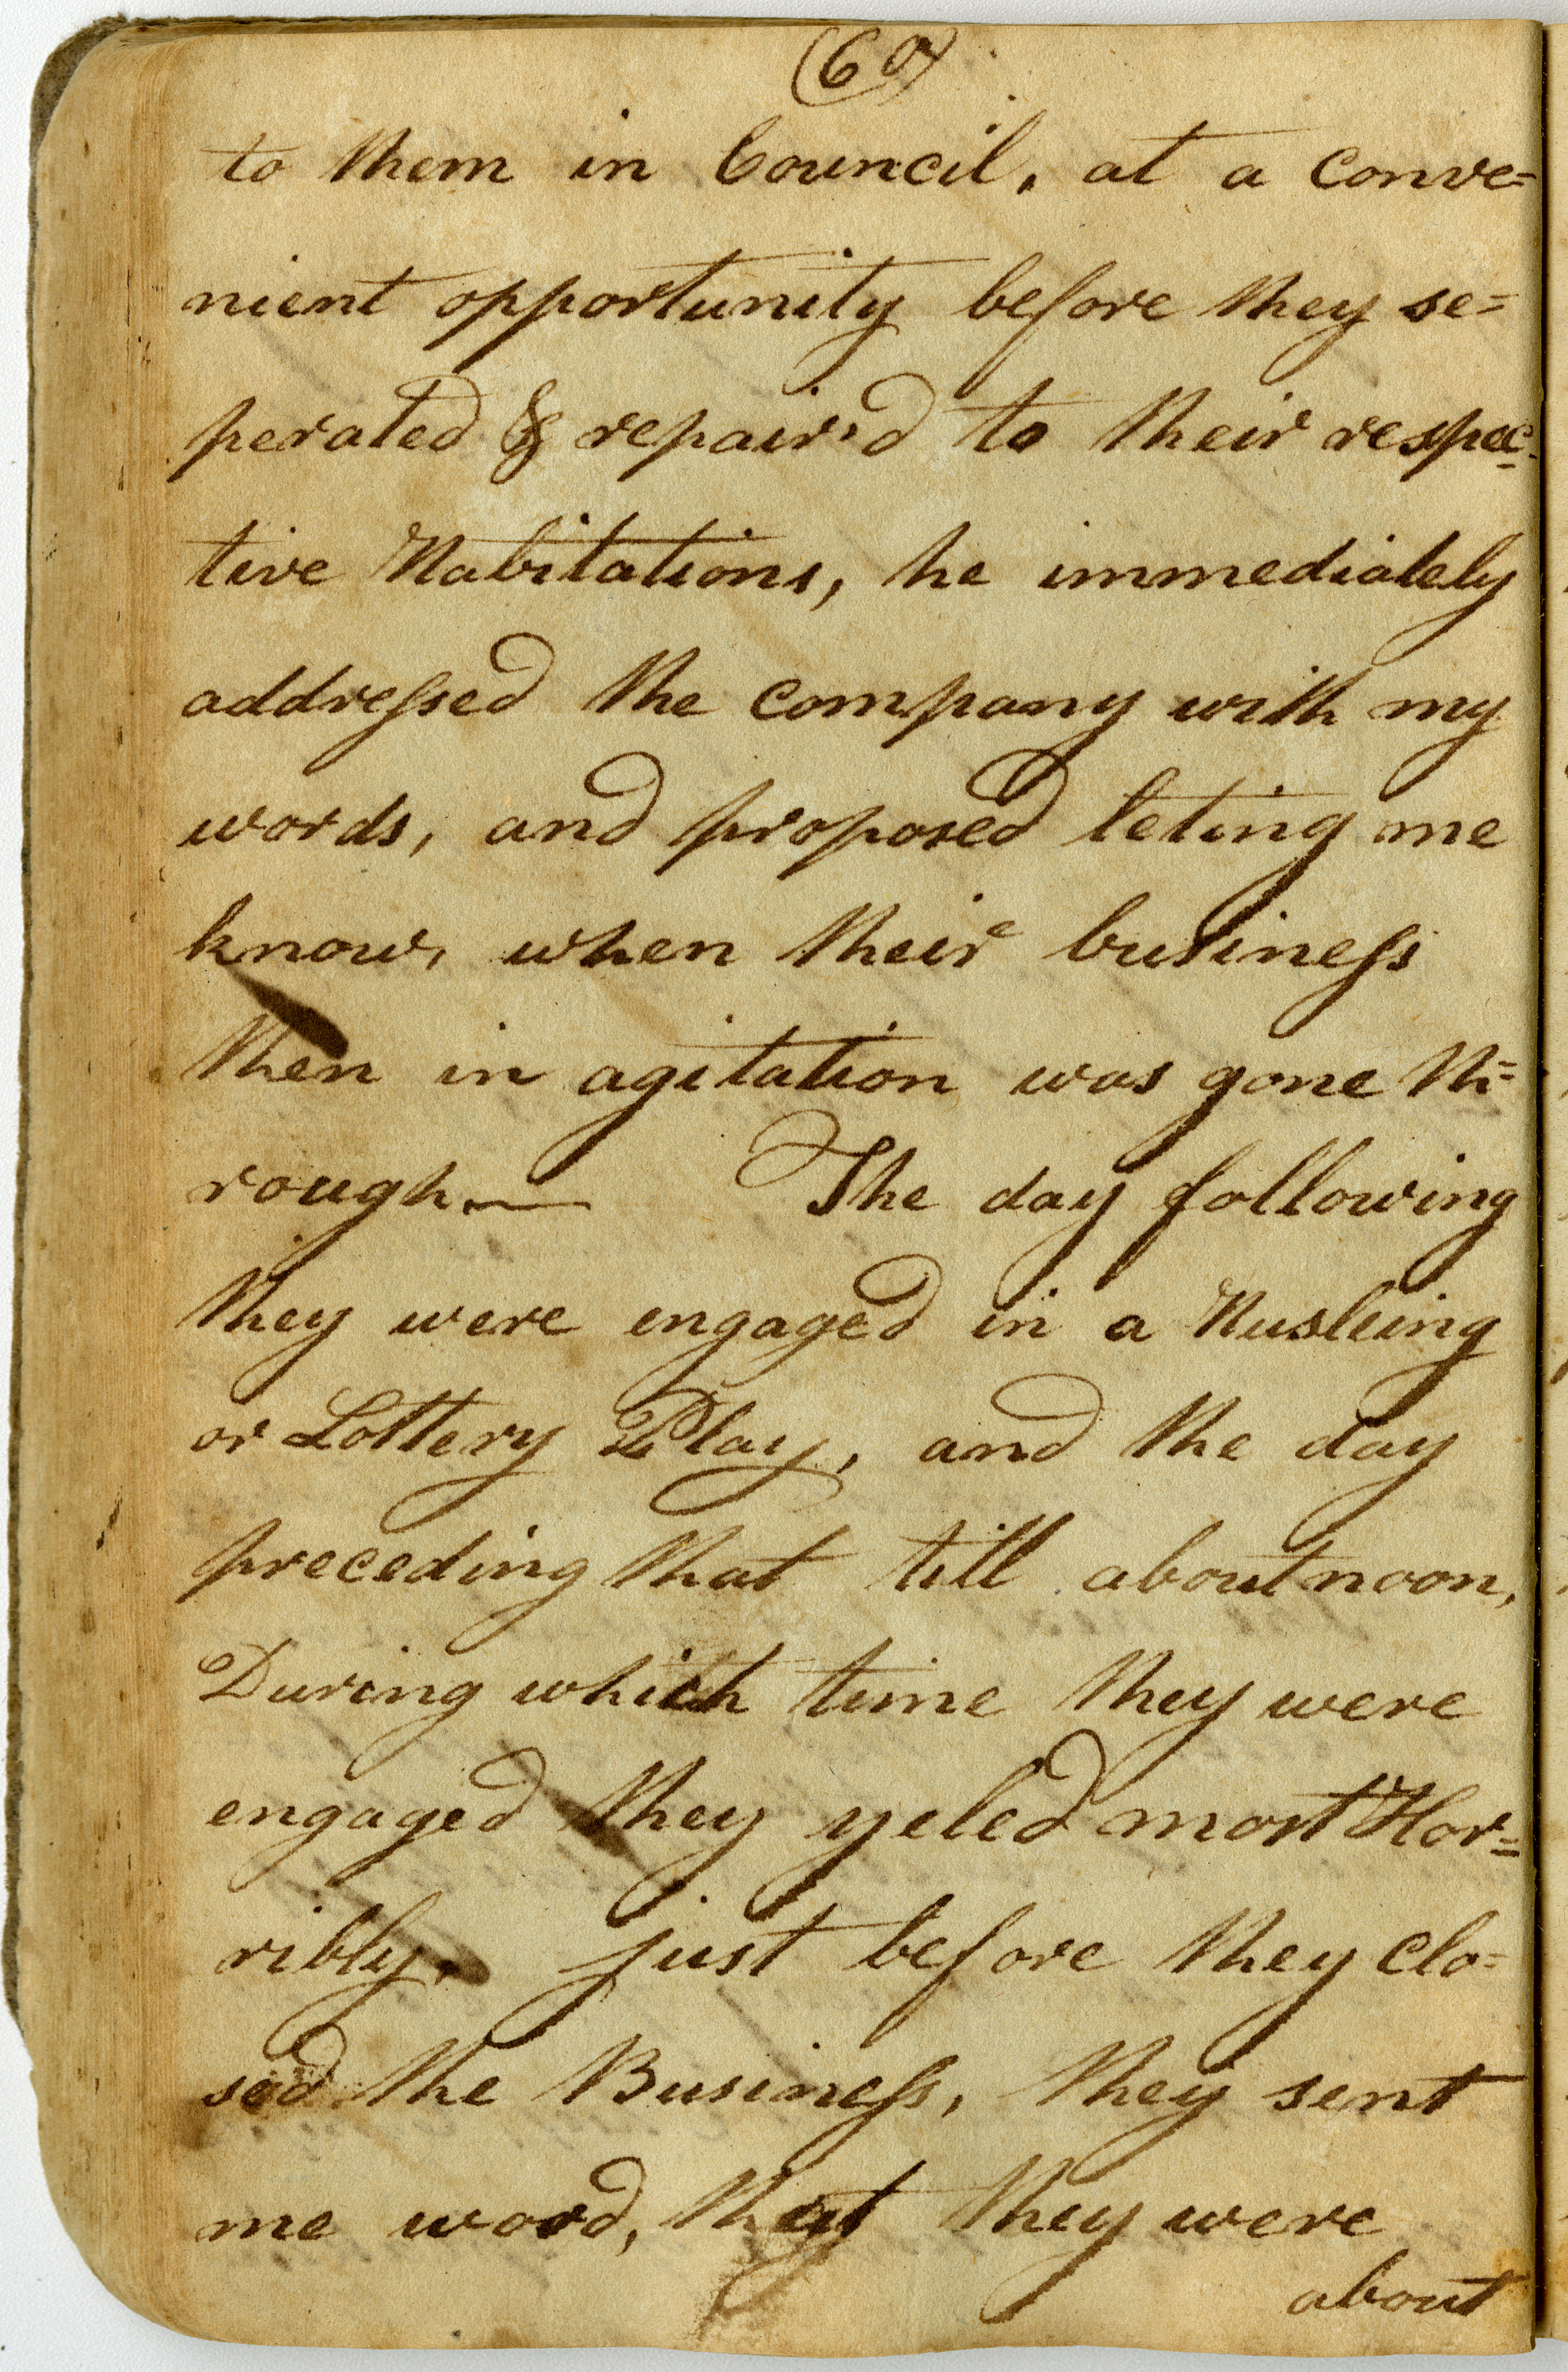 (60)
to them in Council, at a conve=
nient opportunity before they se=
perated & repair'd to their respec-
tive Habitations, he immediately
addressed the company with my
words, and proposed leting me
know, when their business
then in agitation was gone th=
rough.— The day following
they were engaged in a Husleing
or Lottery Play, and the day
preceding that till about noon,
During which time they were
engaged they yeled most Hor=
ribly, just before they clo=
sed the Business, they sent
me word, that they were
about